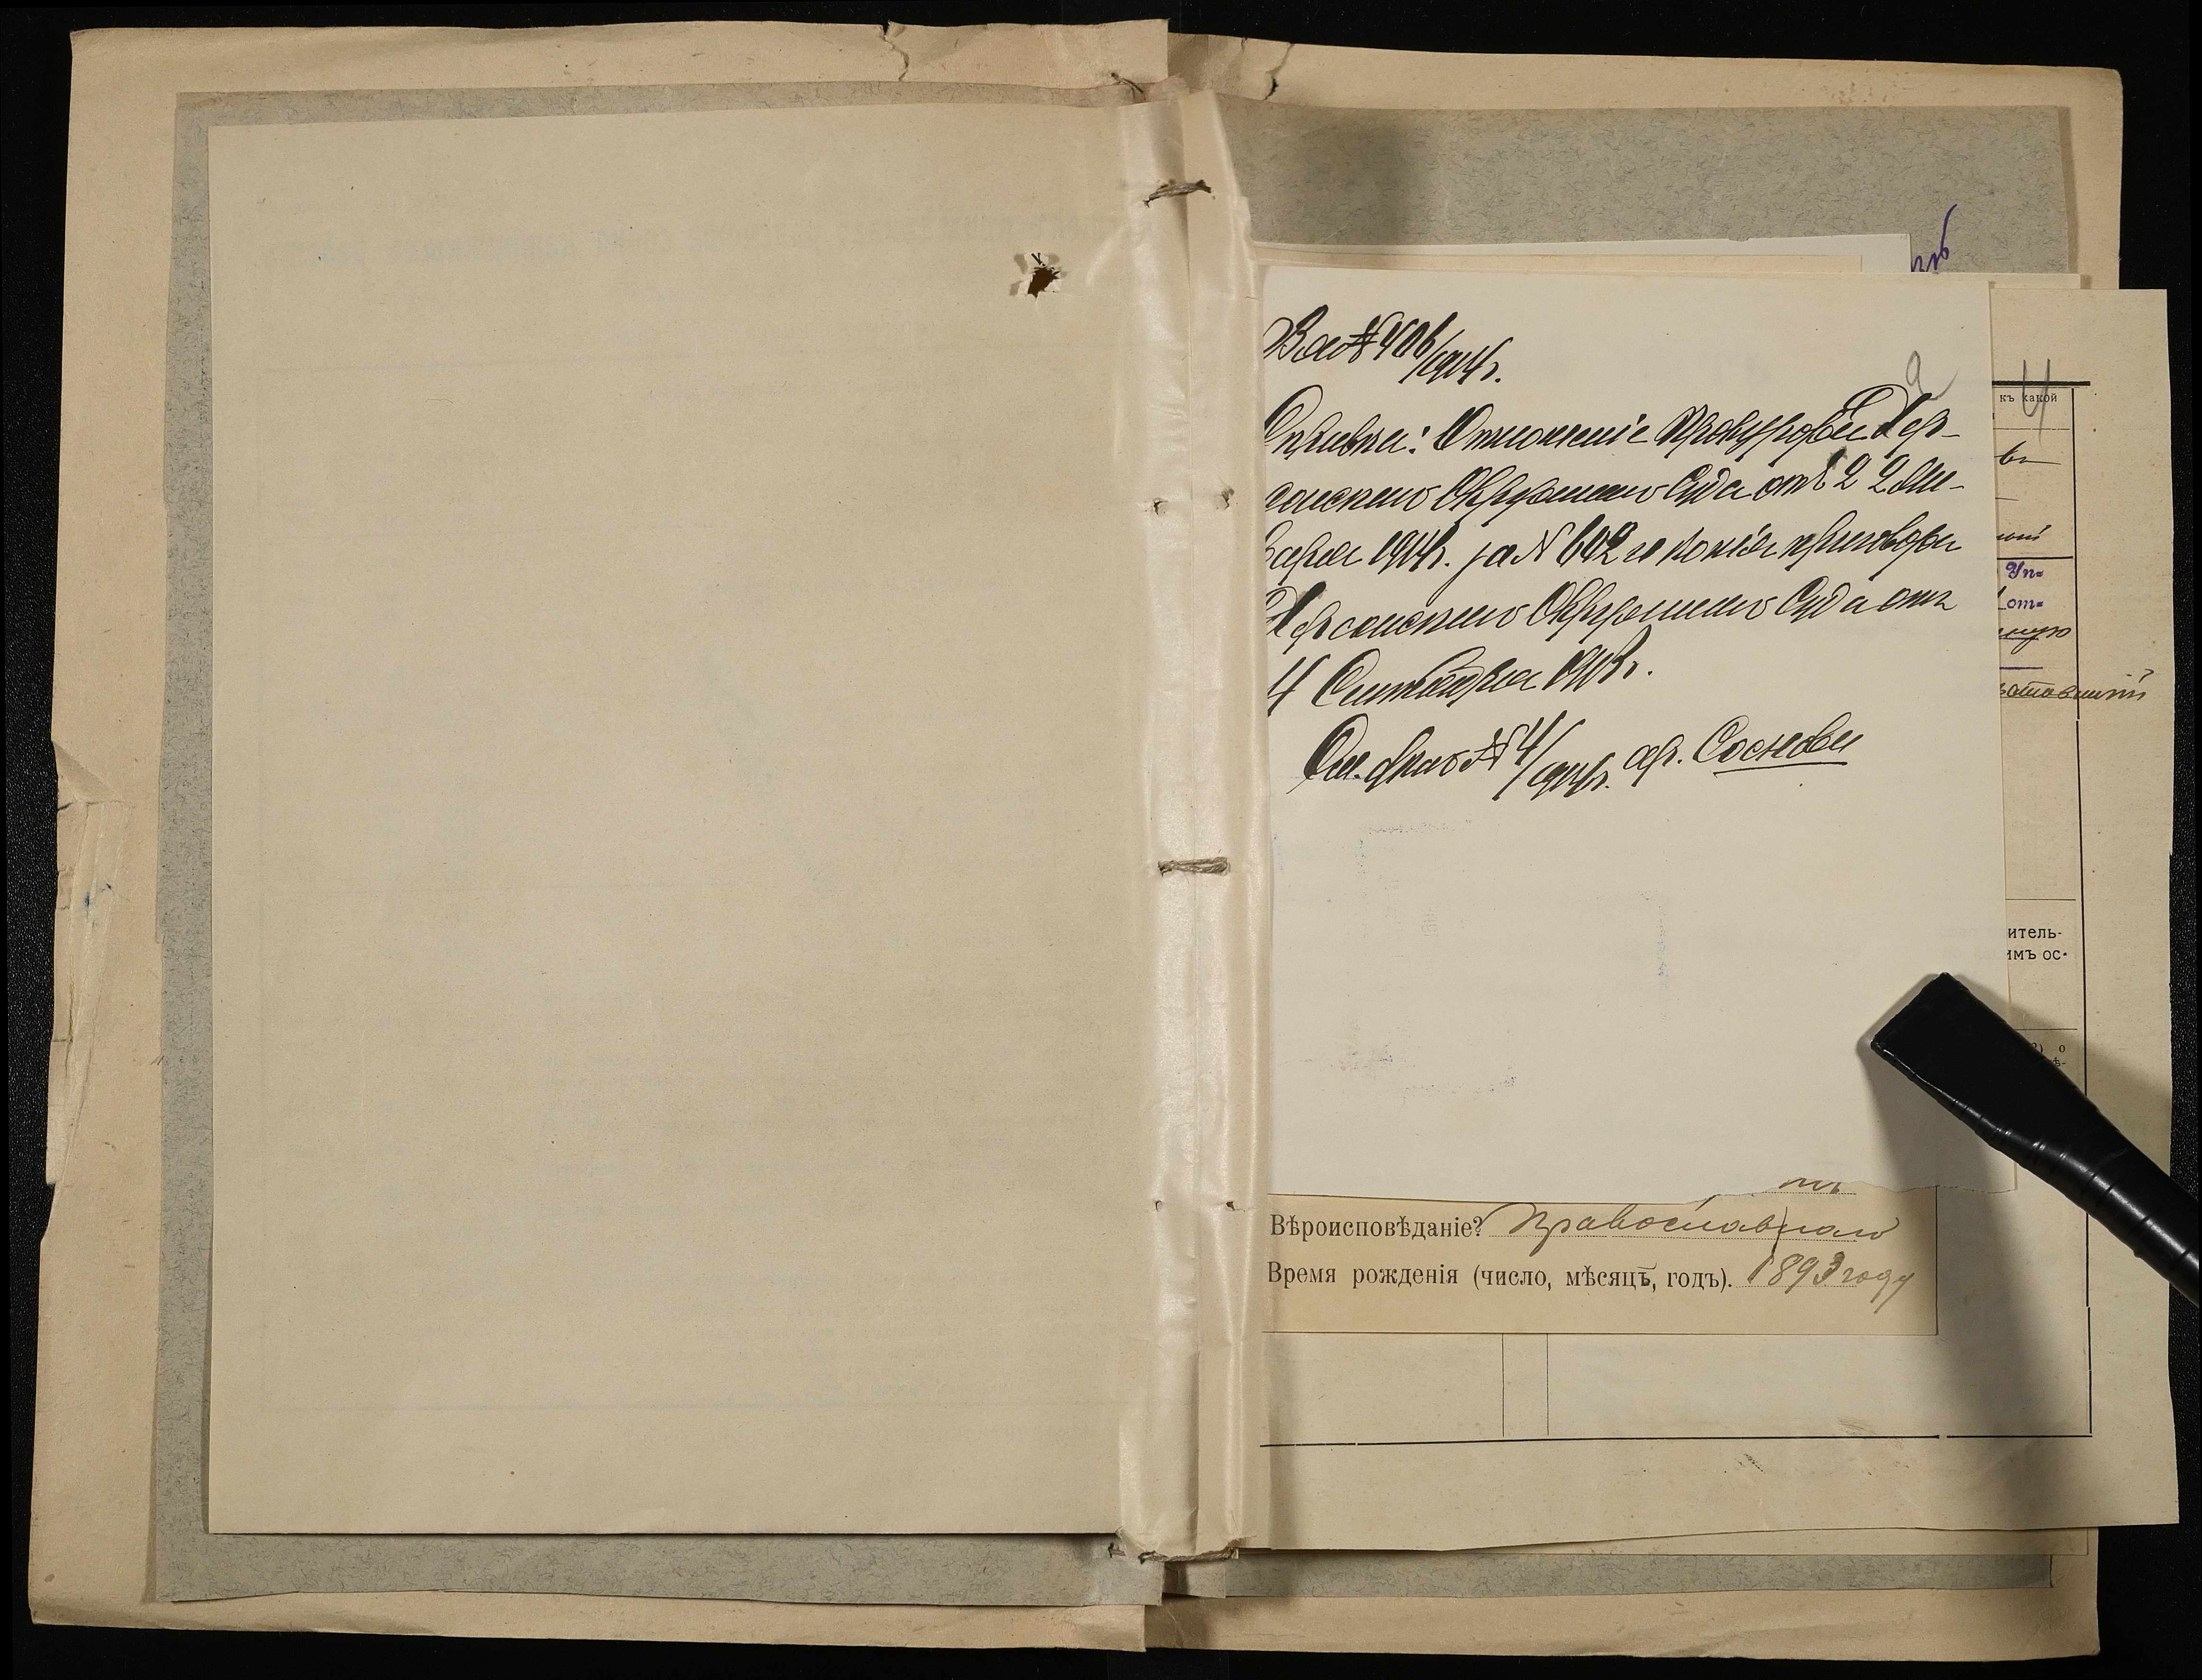 Вх. № 406/1914 г.
Справка: Отношеніе Прокурора Хер-
сонскаго Окружнаго Суда отъ 22 Ян-
варя 1914 г. за № 602 и копія приговора
Херсонскаго Окружнаго Суда отъ
4 Сентября 1913 г.
См. дѣло № 4/1914 г. ар. Соснова
къ какой
Уп=
от=
итель-
имъ ос-
Вѣроисповѣданіе? Православнаго
Время рожденія (число, мѣсяцъ, годъ). 1893 году